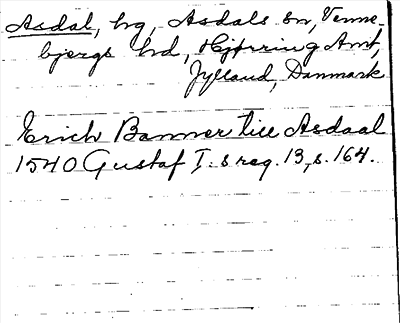 Asdal, hg, Asdals sn, Venne-
bjergs hd, Hjørring Amt,
Jylland, Danmark
Erich Banner till Asdaal
1540 Gustaf I.s reg. 13, s. 164.